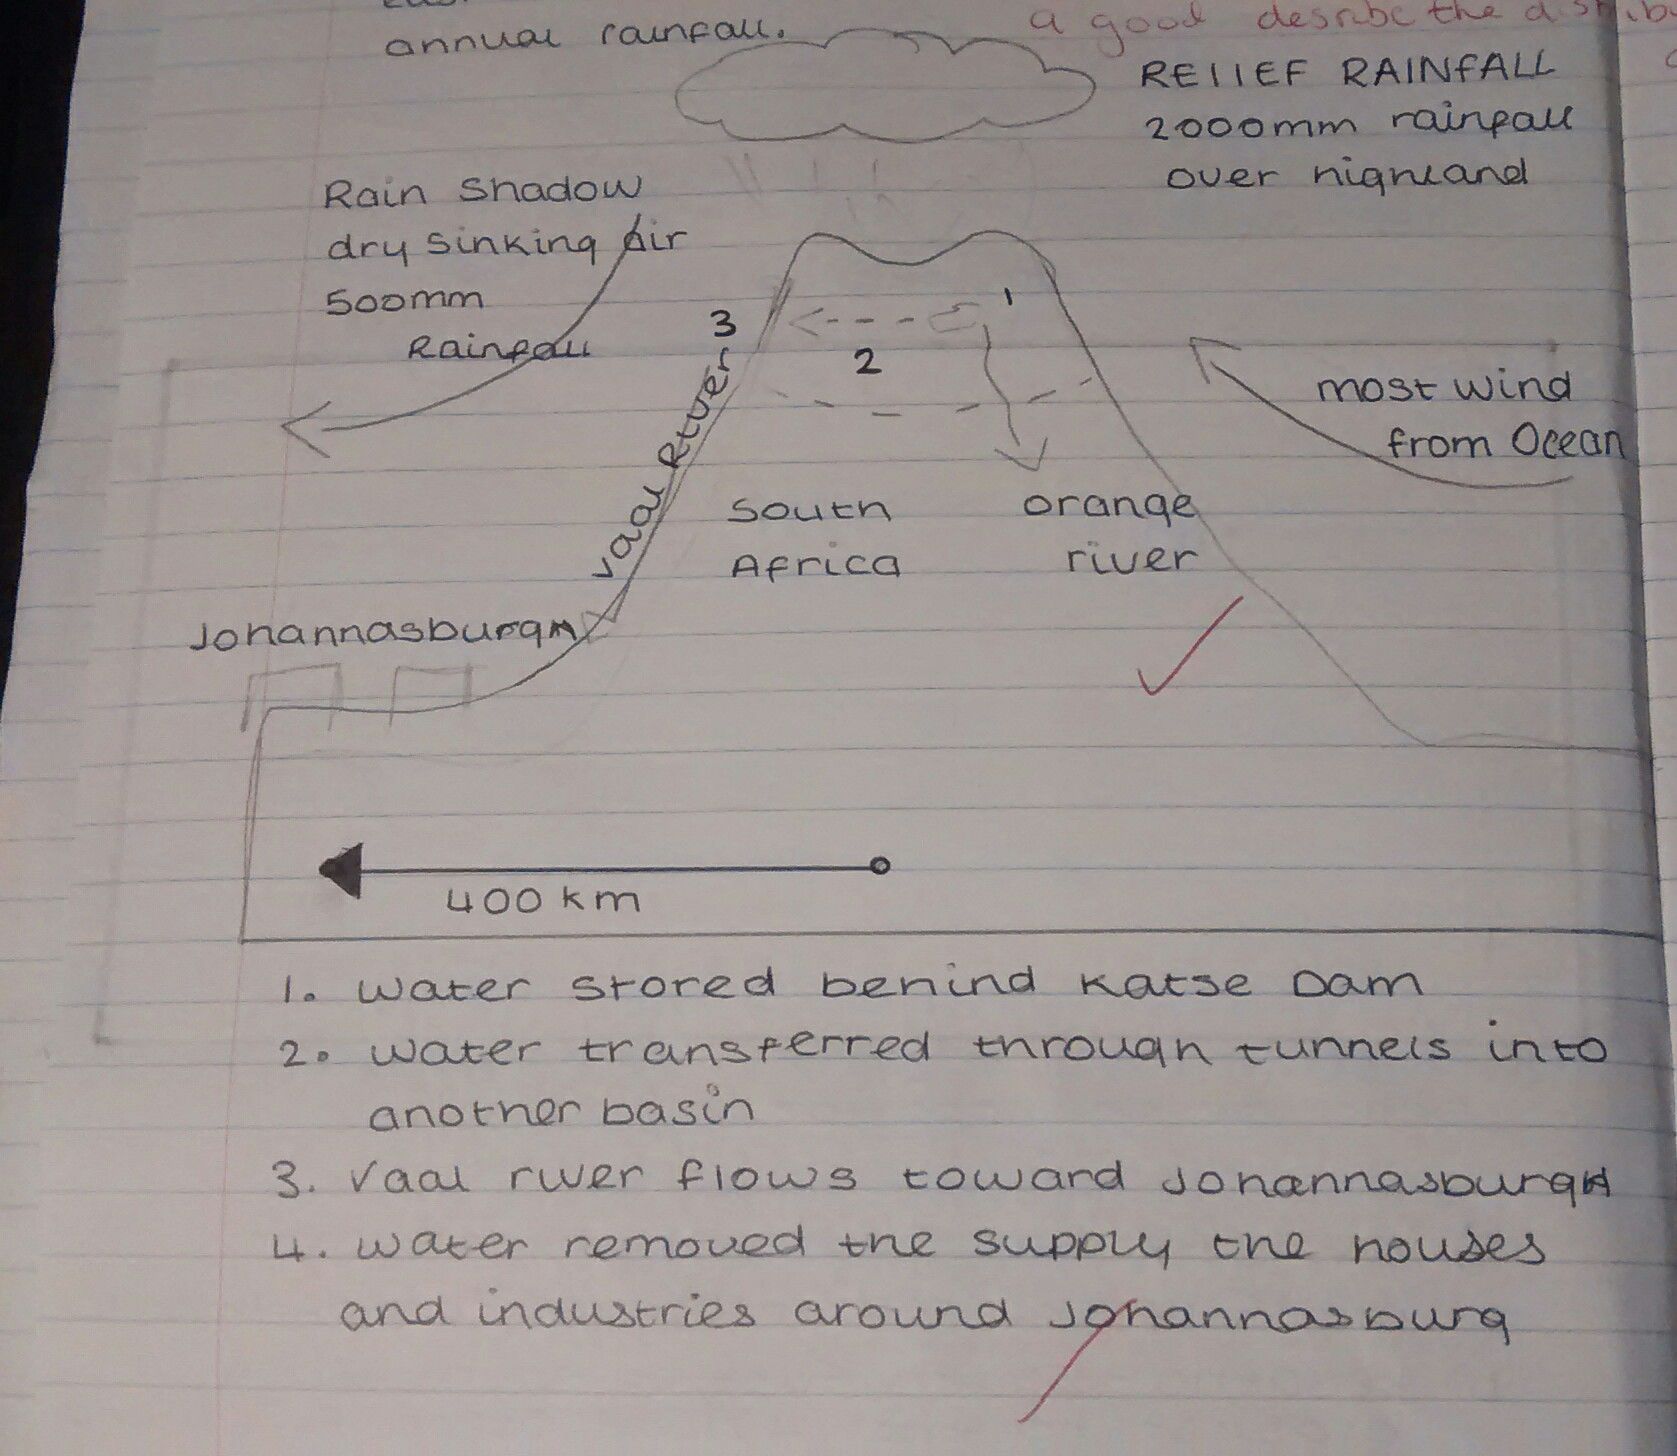 annual rainfall.
a good desribe the distrib
RELIEF RAINFALL
2000mm rainfall
over highland
Rain Shadow
dry sinking air
500mm
Rainfall
1
3
2
most wind
from Ocean
Vaal River
South
Africa
orange
river
Johannasburgh
400 km
1. water stored behind Katse Dam
2. water transferred through tunnels into
another basin
3. Vaal river flows toward Johannasburgh
4. water removed the supply the houses
and industries around Johannasburg